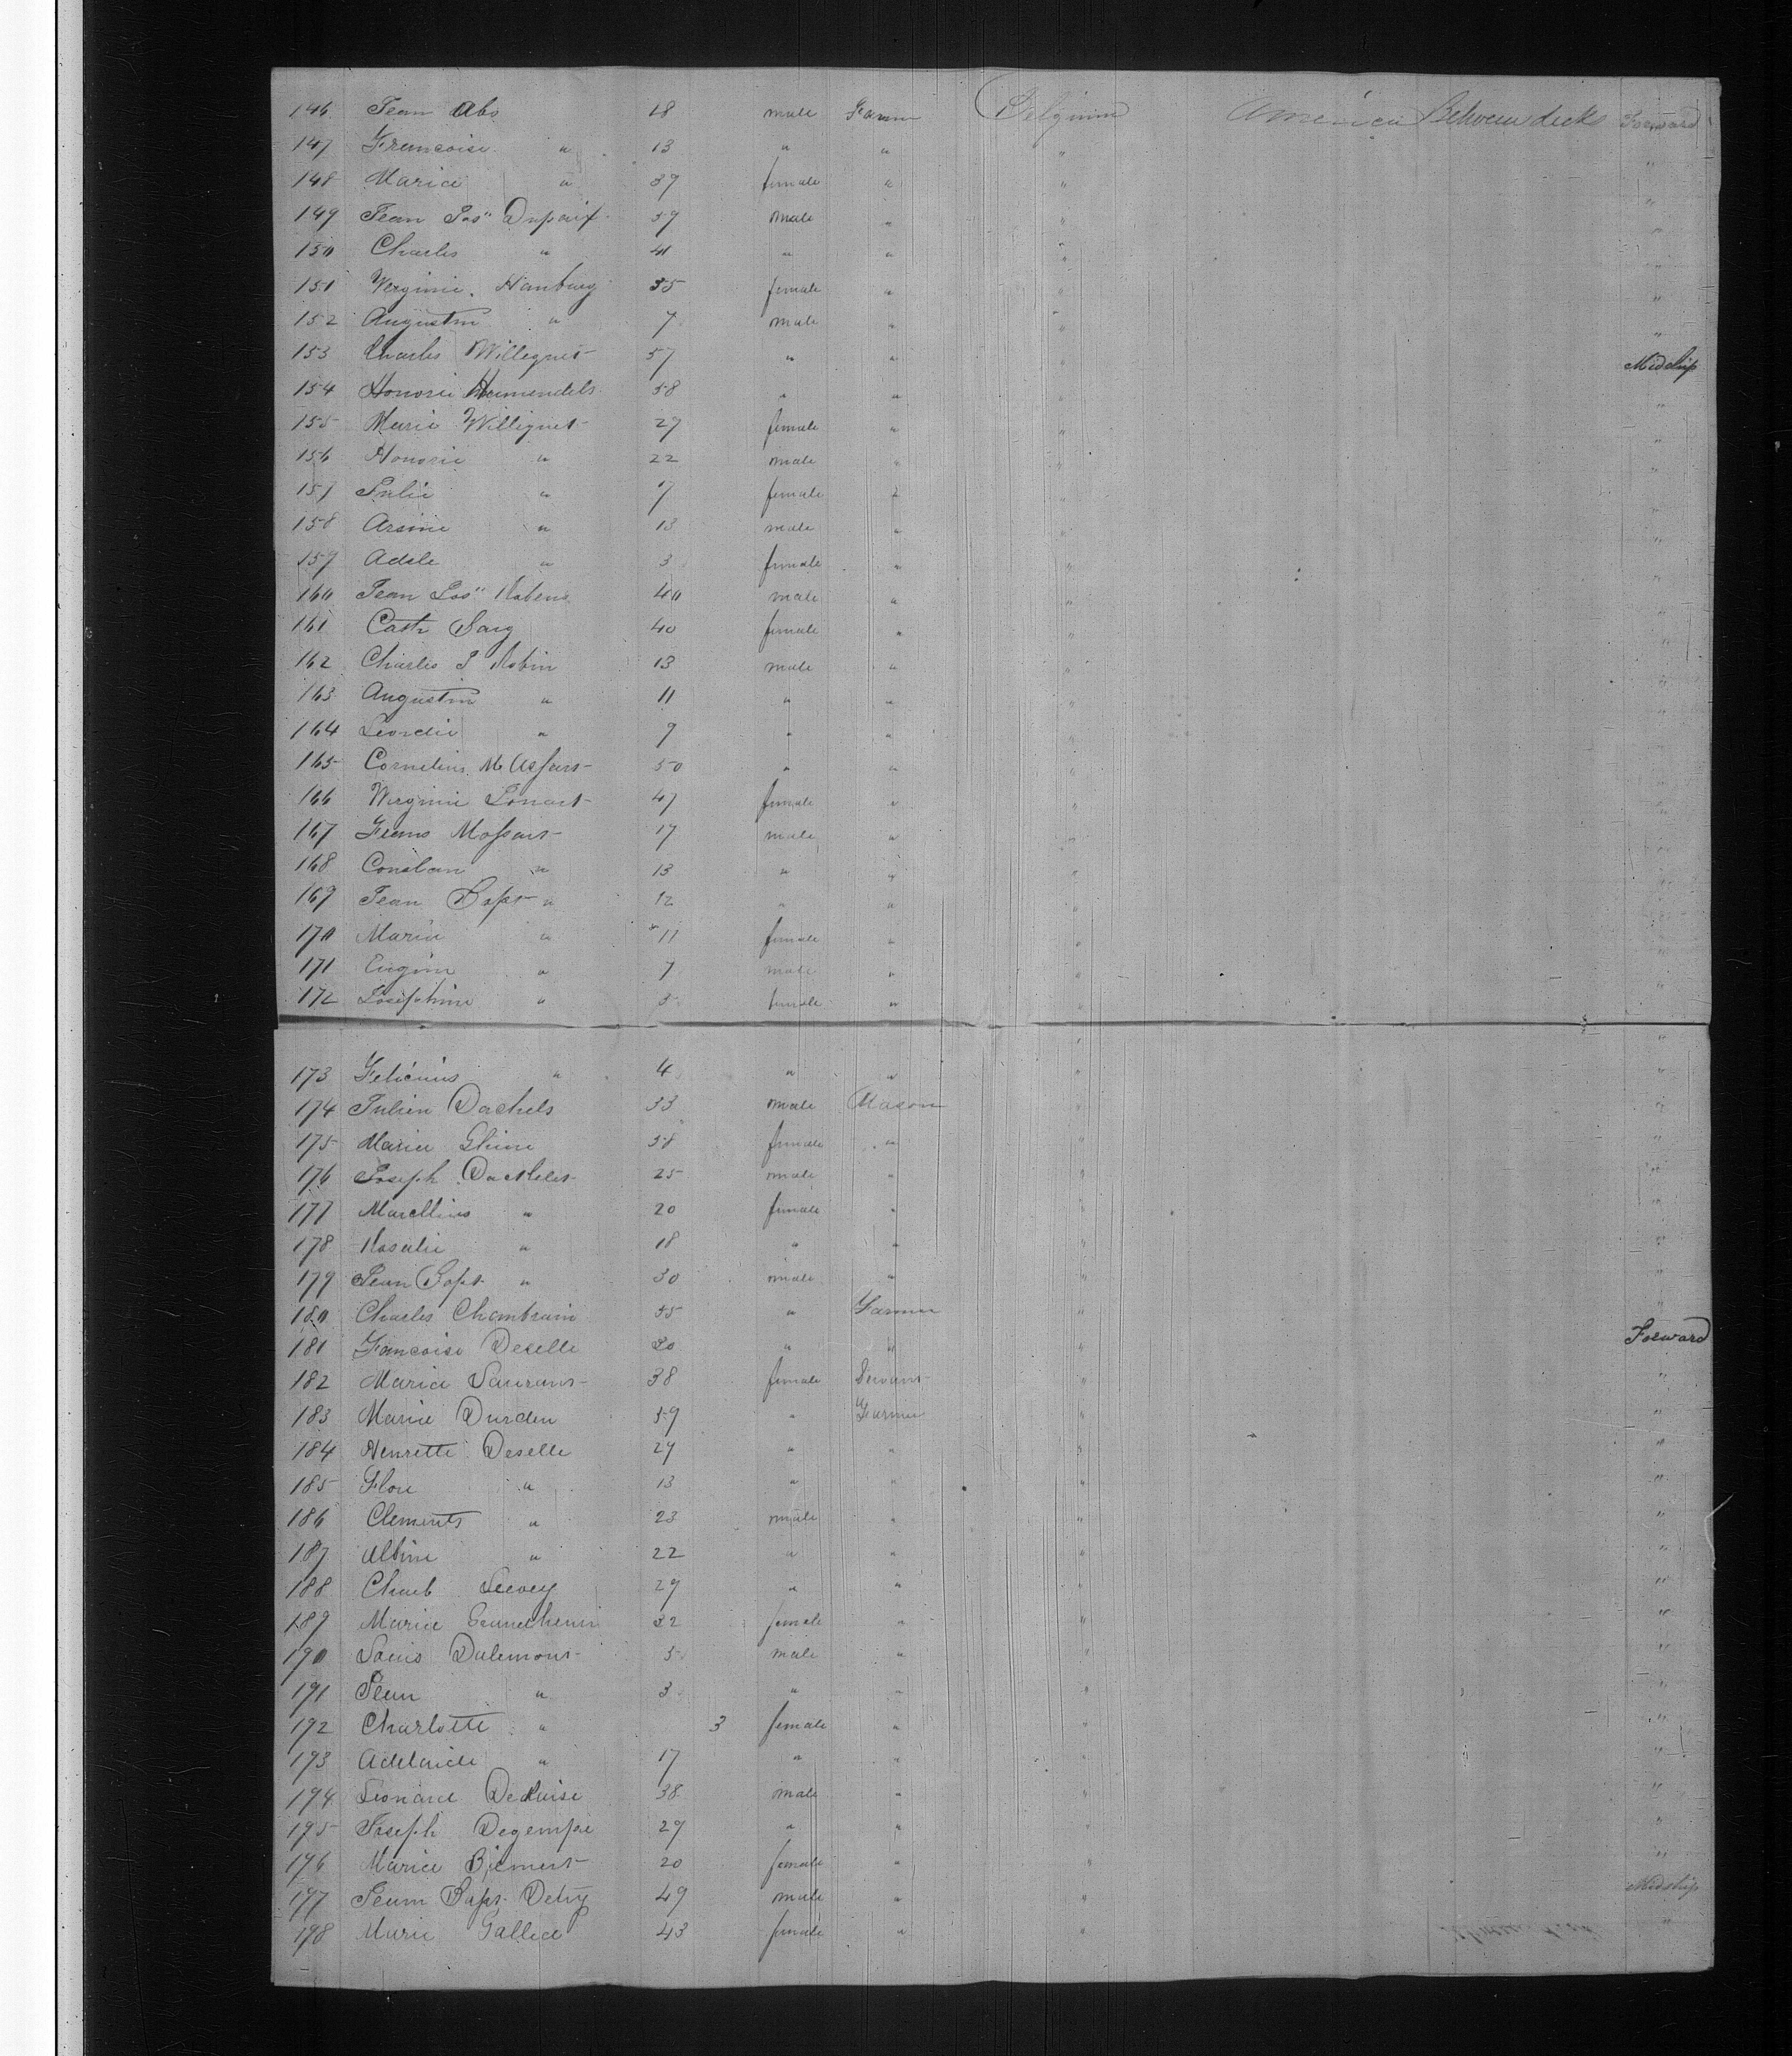 146 Jean Abs 18 male Farmer Belgium America Between decks Forward
147 Francoise " 13 " " " "
148 Marie " 39 female " " "
149 Jean Jos" Dupaix 59 male " " "
150 Charles " 41 " " " "
151 Verginie Hanbury 35 female " " "
152 Augustin " 7 male " " "
153 Charles Willequet 57 " " " Midship
154 Honorie 58 " " " "
155 Marie Williquet 29 female " " "
156 Honorie " 22 male " " "
157 Julie " 7 female " " "
158 Arsine " 13 male " " "
159 Adele " 3 female " " "
160 Jean Jos" Robens 40 male " " "
161 Cath Sary 40 female " " "
162 Charles J Robin 13 male " " "
163 Augustin " 11 " " " "
164 Leordie " 9 " " " "
165 Cornelius 50 " " " "
166 Virginie Lonart 47 female " " "
167 Frans Mossart 17 male " " "
168 Constan " 13 " " " "
169 Jean Bapt " 12 " " " "
170 Marie " 11 female " " "
171 Eugene " 7 male " " "
172 Josephine " 5 female " " "
173 Felicinis " 4 " " " "
174 Julien Dachels 33 male Mason " "
175 Marie Ghine 58 female " " "
176 Joseph Dachelet 25 male " " "
177 Marcellins " 20 female " " "
178 Rosalie " 18 " " " "
179 Jean Bapt " 30 male " " "
180 Charles Chambrain 55 " Farmer " "
181 Francoise Deselle 20 " " " Forward
182 Marie Laurant 38 female Servant " "
183 Marie Durden 59 " Farmer " "
184 Henrette Deselle 29 " " " "
185 Flore " 13 " " " "
186 Clements " 23 male " " "
187 Albine " 22 " " " "
188 Charl Seevey 29 " " " "
189 Marie 32 female " " "
190 Louis Dalemont 5 male " " "
191 Jean " 3 " " " "
192 Charlotte " 3 female " " "
193 Adelaide " 17 " " " "
194 Leonard Decluise 38 male " " "
195 Joseph Degempe 29 " " " "
196 Marie Biemert 20 female " " "
197 Jean Bapt Detry 49 male " " Midship
198 Marie Galled 43 female " " "